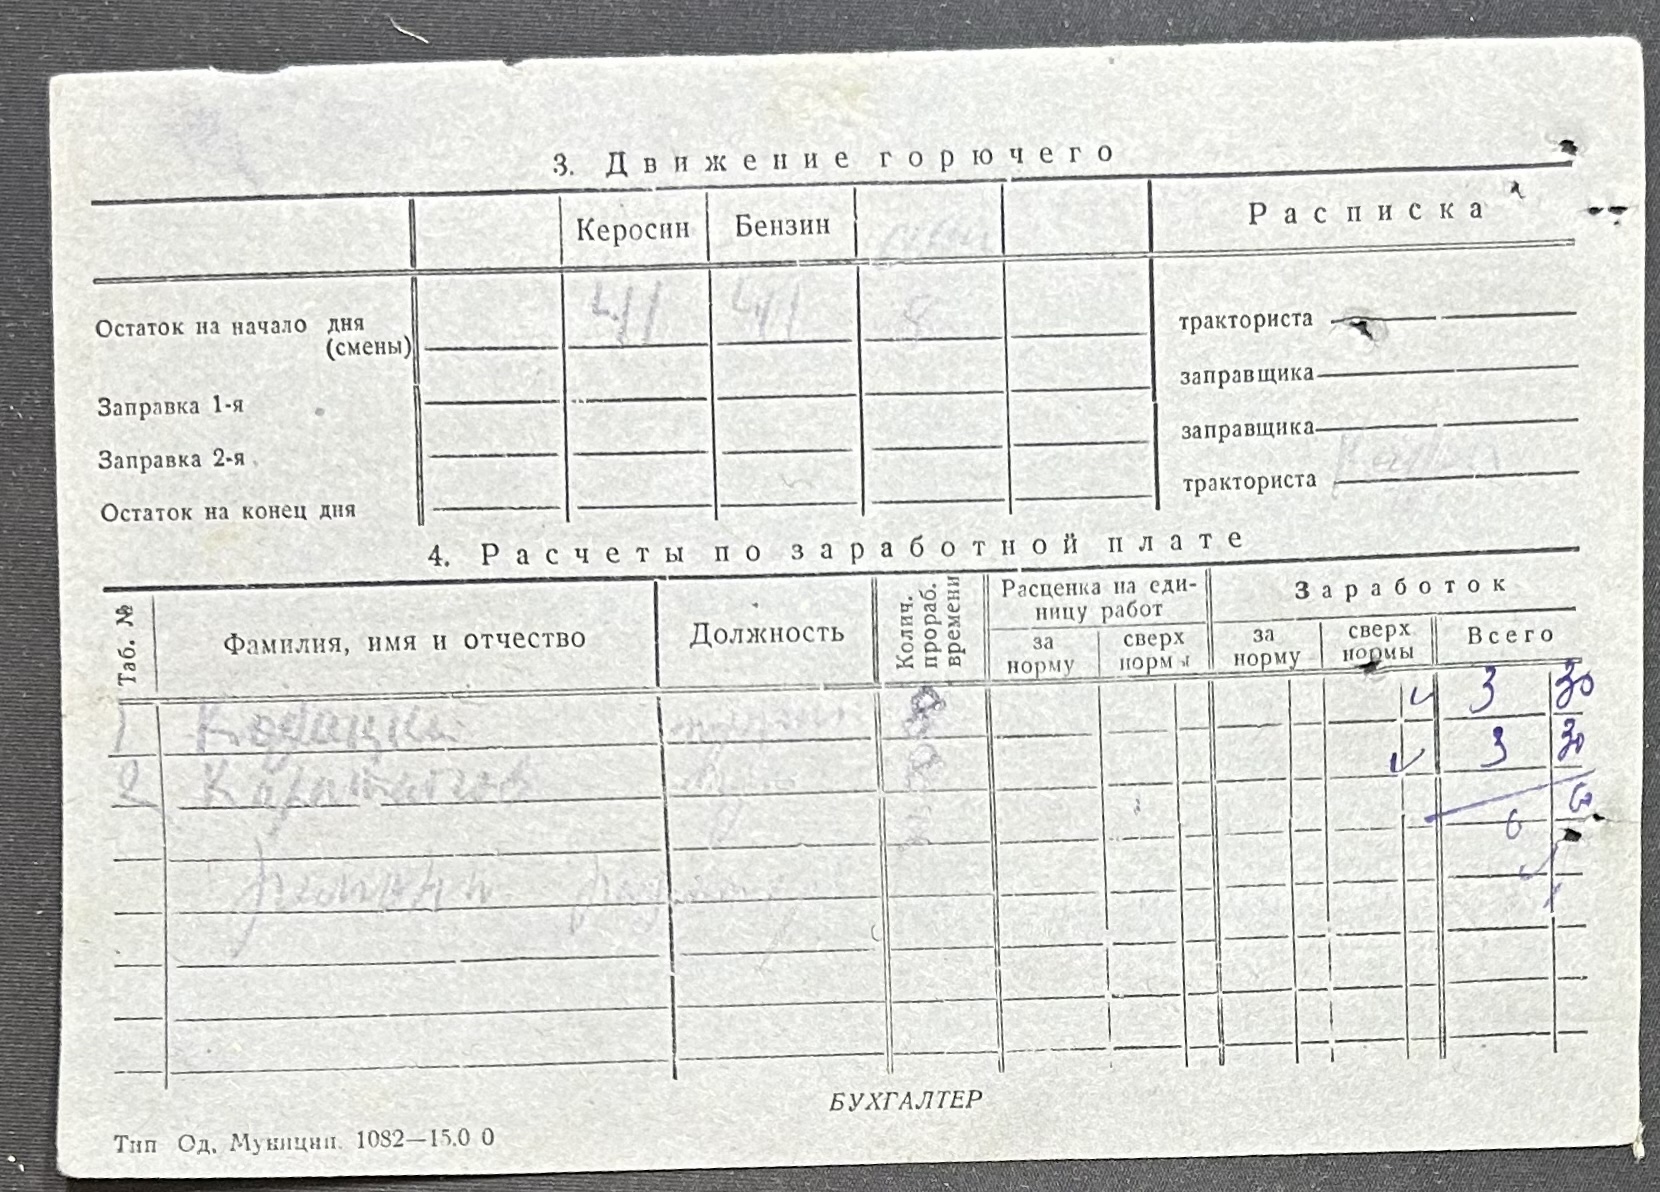 3. Движение горючего
Керосин Бензин Расписка
Остаток на начало дня (смены) 41 41 8 тракториста
Заправка 1-я заправщика
Заправка 2-я заправщика
Остаток на конец дня тракториста
4. Расчеты по заработной плате
Таб. № Фамилия, имя и отчество Должность Колич. прораб. времени Расценка на еди-
ницу работ Заработок
за норму сверх нормы за норму сверх нормы Всего
1 3 30
2 3 30
6 60
БУХГАЛТЕР
Тип Од. Муниции. 1082—15.0 0